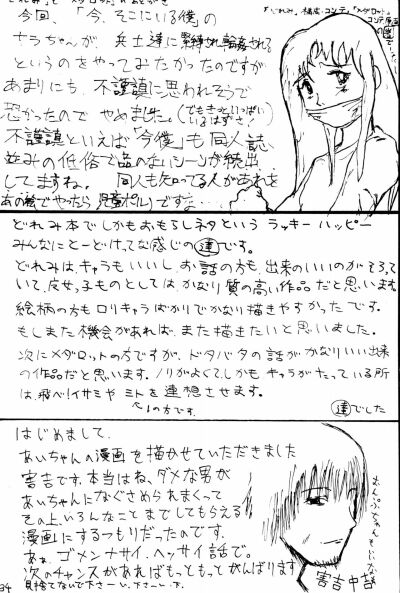 今回、「今、そこにいる僕」の
ちゃんが 兵士達に緊縛され輪姦される
というのをやってみたかったのですが
あまりにも、不謹慎に思われそうで
恐かったので やめました。
(でもきっといっぱい
いるはずさ)
不謹慎といえば「今僕」も同人誌
並みの低俗で品のないシーンが続出
してますね。 同人も知ってる人があれを
あの絵でやったら児童ポルノですな…
どれみ本でしかもおもらしネタという ラッキーハッピー
みんなにとーどけってな感じの達です。
どれみは、キャラもいいし、お話の方も、出来のいいのがそろって
いて、女せっ子ものとしては、かなり質の高い作品だと思います。
絵柄の方もロリキャラばかりでかなり描きやすかったです。
もしまた機会があれば、また描きたいと思いました。
次にメダロットの方ですが、ドタバタの話がかなりいい出来
の作品だと思います。ノリがよくてしかも キャラがたっている所
は、飛べ!イサミや ミトを連想させます。
の方です。
達でした
はじめまして、
あいちゃんの漫画を描かせていただきました
害吉です。本当はね、ダメな男が
あいちゃんになぐさめられまくって
その上いろんなことまでしてもらえる
漫画にするつもりだったのです。
あぁ ゴメンナサイ、ヘッサイ話で。
次のチャンスがあればもっともっとがんばります
見捨てないで下さーい、下さーい、下
おんぷちゃんもいいな
害吉中吉
34